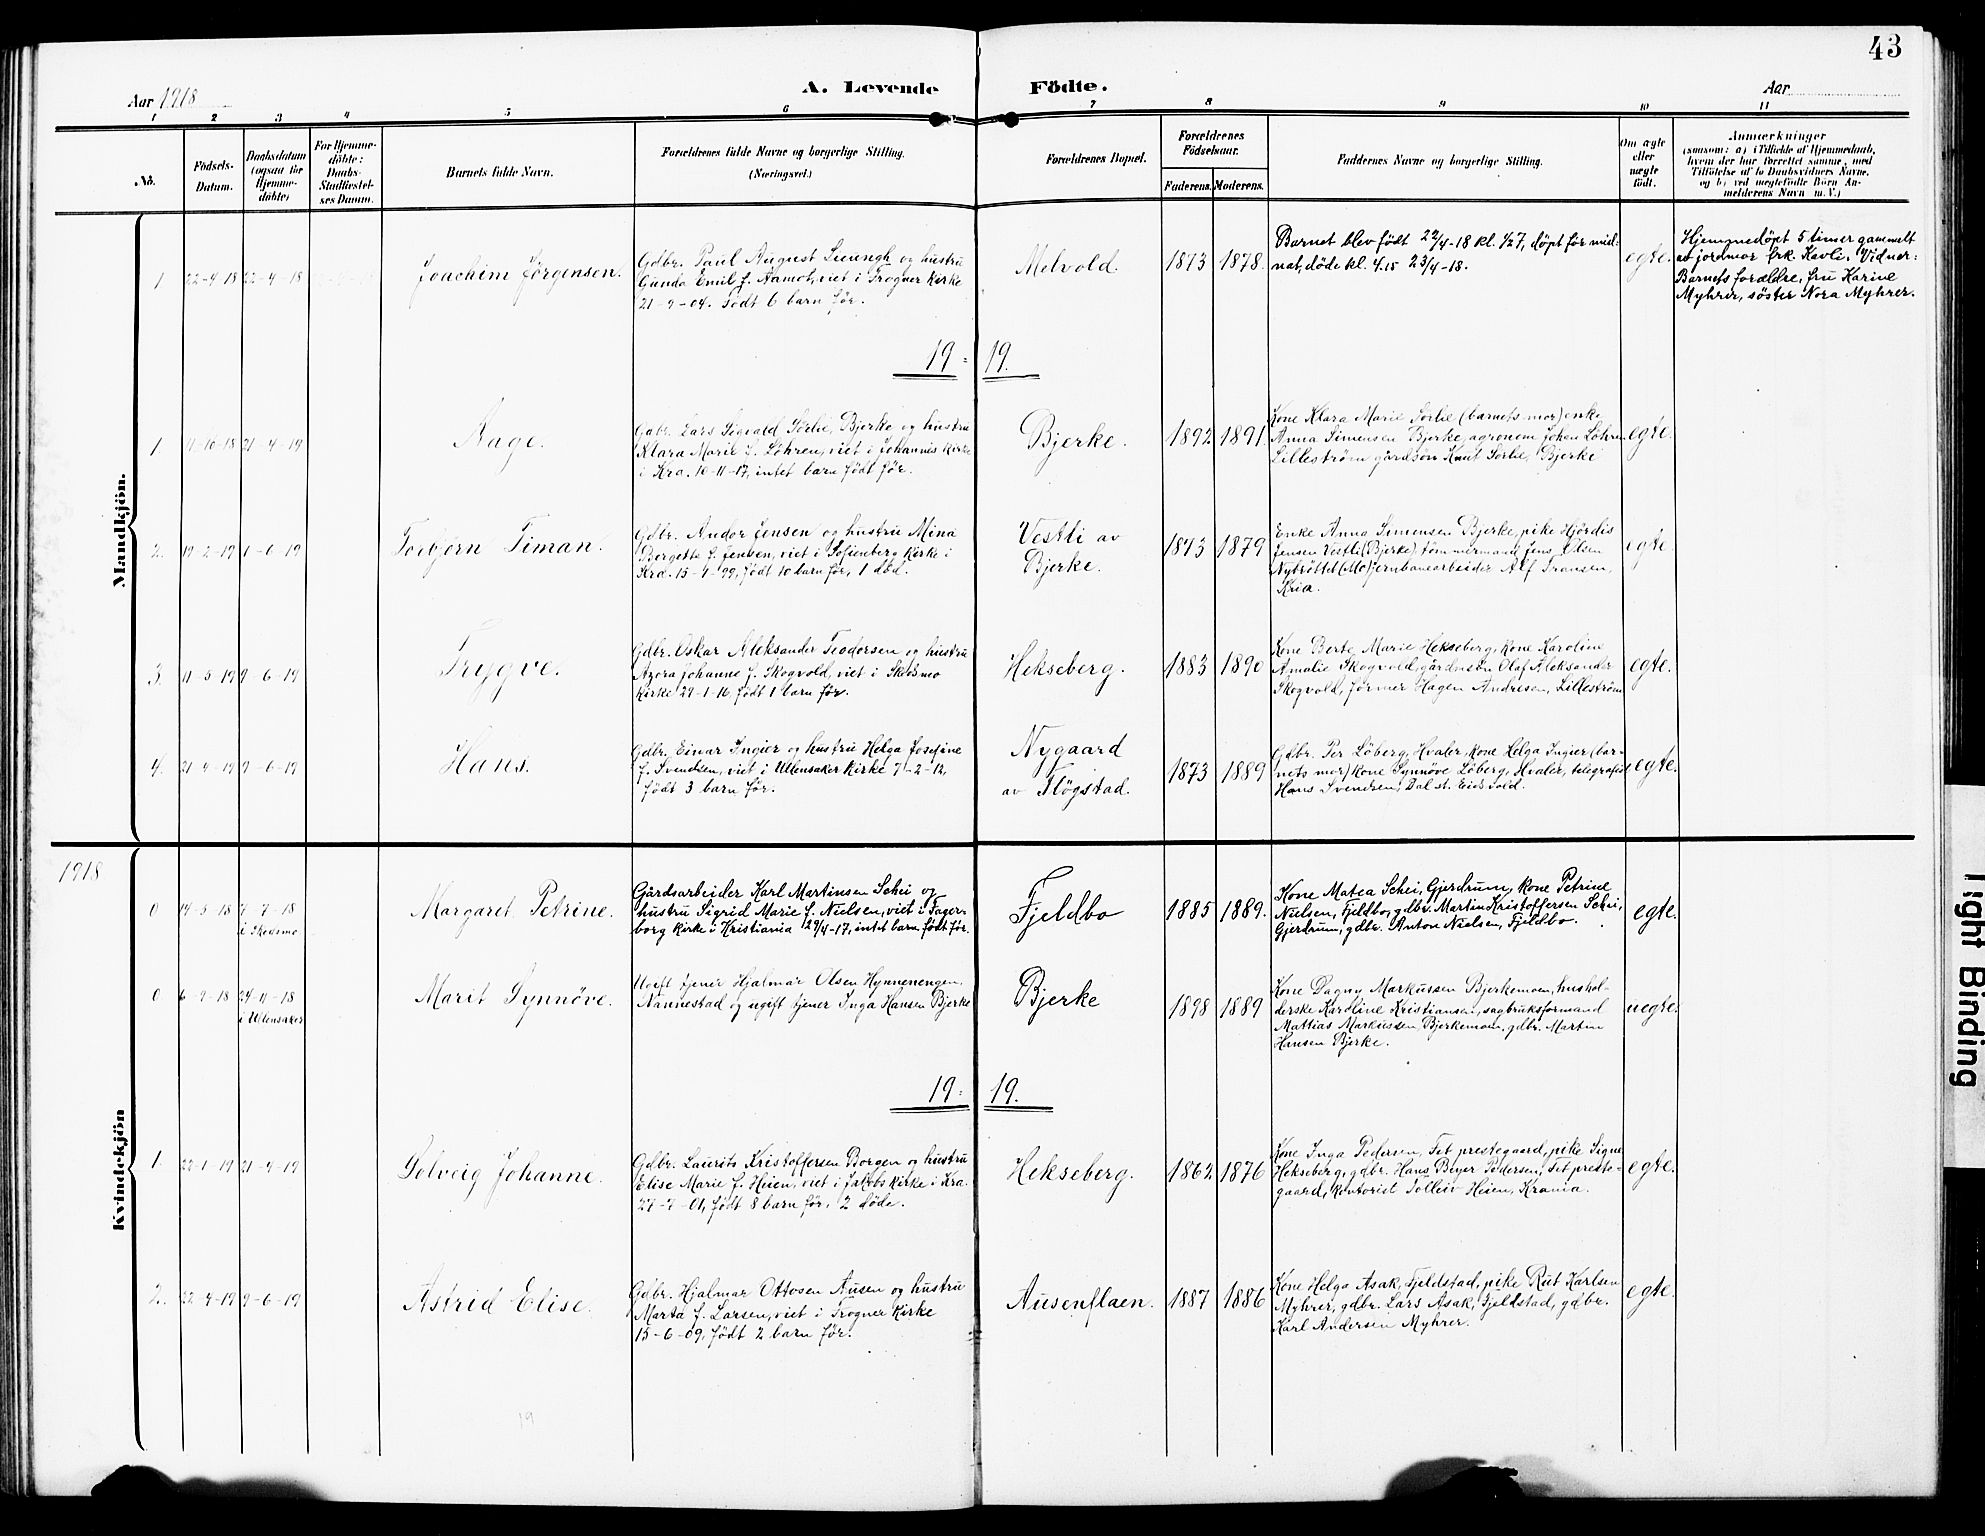 43
Aar 1918
A. Levende
Födte.
Aar
1 2 3 4 5 6 7 8 9 10 11
No.
Födsels-
Datum.
Daabsdatum
(ogsaa for
Hjemme-
döbte)
For Hjemme-
döbte:
Daabs-
Stadfæstel-
ses Datum.
Barnets fulde Navn.
Forældrenes fulde Navne og borgerlige Stilling.
(Næringsvei.)
Forældrenes Bopæl.
Forældrenes
Födselsaar.
Faderens.
Moderens.
Faddernes Navne og borgerlige Stilling.
Om ægte
eller
uægte
födt.
Anmærkninger
(saasom: a) i Tilfælde af Hjemmedaab,
hvem der har forrettet samme, med
Tilföielse af to Daabsvidners Navne.
og b) ved uægtefödte Börn An-
melderens Navn m. V.)
Mandkjön.
1. 22-4-18 22-4-18
Joachim Jörgensen.
Gdbr. Paul August og hustru
Gunda Emil f. Aamot, viet i Frogner Kirke
21-9-04. Født 6 barn før.
Melvold.
1873 1878.
Barnet blev født 22/4-18 kl. 1/2 7, døpt før mid-
nat, døde kl. 4.15 23/4-18.
egte.
Hjemmedøpt 5 timer gammelt
av jordmor frk. Kavli. Vidner:
Barnets forældre, fru Karine
Myhrer, søster Nora Myhrer.
19 = 19.
1. 11-10-18 21-4-19
Aage.
Gdbr. Lars Sigvald Sørlie, Bjerke og hustru
Klara Marie f. Løhren, viet i Johannis kirke
i Kra. 10-11-17, intet barn født før.
Bjerke.
1892 1891.
Kone Klara Marie Sørlie (barnets mor) enke
Anna Simensen Bjerke, agronom Johan Løhren
Lillestrøm, gårdsøn Knut Sørlie, Bjerke
egte.
2. 19-2-19 1-6-19
Torbjørn Timan.
Gdbr. Andor Jensen og hustru Mina
Borgette f. Jensen, viet i Sofienberg Kirke i
Kra. 15-4-99, født 10 barn før, 1 død.
Vestli av
Bjerke.
1873 1879
Enke Anna Simensen Bjerke, pike Hjördis
Jensen Vestli (Bjerke), tømmermand Jens Olsen
jernbanearbeider Alf Fransen,
Kria.
egte.
3. 11-5-19 9-6-19
Trygve.
Gdbr. Oskar Aleksander Teodorsen og hustru
Azora Johanne f. Skogvold, viet i Skedsmo
Kirke 27-1-16, født 1 barn før.
Hekseberg.
1883 1890
Kone Berte Marie Hekseberg, kone Karoline
Amalie Skogvold, gårdmsøn Olaf Aleksander
Skogvold, former Hagen Andresen, Lillestrøm
egte.
4. 21-4-19 9-6-19
Hans.
Gdbr. Einar Ingier og hustru Helga Josefine
f. Svendsen, viet i Ullensaker Kirke 7-2-12,
født 3 barn før.
Nygaard
av Fløgstad.
1873 1889
Gdbr. Per Löberg, Hvaler, kone Helga Ingier (bar-
nets mor) kone Synnöve Löberg, Hvaler, telegrafist
Hans Svendsen, Dal st. Eidsvold.
egte.
1918
Kvindekjön
0 14-5-18 7-7-18
i Skedsmo
Margaret Petrine.
Gårdsarbeider Karl Martinsen Schei og
hustru Sigrid Marie f. Nielsen, viet i Fager-
borg kirke i Kristiania 29/4-17, intet barn født før.
Fjeldbo
1885 1889.
Kone Matea Schei, Gjerdrum, kone Petrine
Nielsen, Fjeldbo, gdbr. Martin Kristoffersen Schei,
Gjerdrum, gdbr. Anton Nielsen, Fjeldbo.
egte.
0 6-9-18 24-11-18
i Ullensaker
Marit Synnöve.
Ugift tjener Hjalmar Olsen Hynnenengen,
Nannestad og ugift tjener Inga Hansen Bjerke
Bjerke
1898 1889
Kone Dagny Markussen Bjerkemoen, hushol-
derske Karoline Kristiansen, sagbruksformand
Mattias Markussen Bjerkemoen, gdbr. Martin
Hansen Bjerke.
uegte.
19 = 19.
1. 22-1-19 21-4-19
Solveig Johanne.
Gdbr. Laurits Kristoffersen Borgen og hustru
Elise Marie f. Heien, viet i Jakobs kirke i Kra.
27-7-01, født 8 barn før, 2 døde.
Hekseberg.
1862 1876
Kone Inga Pedersen, Fet prestegaard, pike Signe
Hekseberg, gdbr. Hans Beyer Pedersen, Fet preste-
gaard, kontorist Tolleiv Heien, Krania.
egte.
2. 22-4-19 9-6-19
Astrid Elise.
Gdbr. Hjalmar Ottosen Ausen og hustru
Marta f. Larsen, viet i Frogner Kirke
15-6-09, født 2 barn før.
Ausenflaen.
1887 1886
Kone Helga Asak, Fjeldstad, pike Rut Karlsen
Myhrer, gdbr. Lars Asak, Fjeldstad, gdbr.
Karl Andersen Myhrer.
egte.
19
Tight Binding